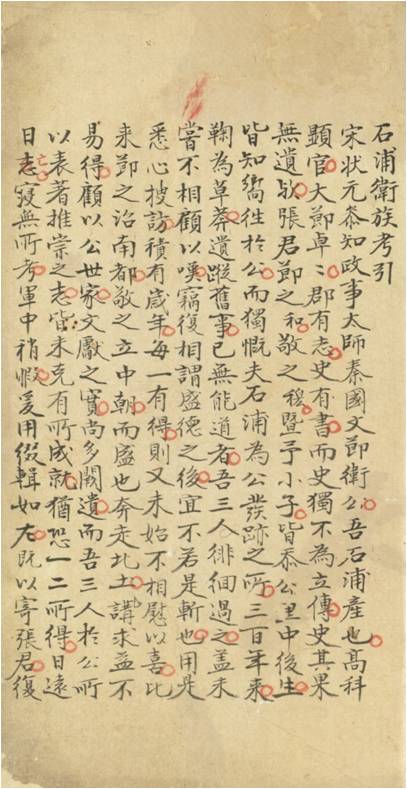 石浦衛族考引
宋狀元叅知政事太師秦國文節衛公吾石浦產也髙科
顯官大節卓〻郡有志史有書而史獨不為立傳史其果
無遺欤張君節之和敬之稷暨予小子皆忝公里中後生
皆知嚮徃於公而獨慨夫石浦為公發跡之所三百年來
鞠為草莽遺蹤舊事已無能道者吾三人徘徊過之蓋未
嘗不相顧以嘆竊復相謂盛徳之後宜不若是斬也用是
悉心搜訪積有歲年每一有得則又未始不相慰以喜比
来節之治南都敬之立中朝而盛也奔走北土講求益不
易得顧以公世家文獻之實尚多闕遺而吾三人於公所
以表著推崇之志皆未克有所成就猶恐一二所得日遠
日志寖無所考軍中稍暇爰用綴輯如左既以寄張君復